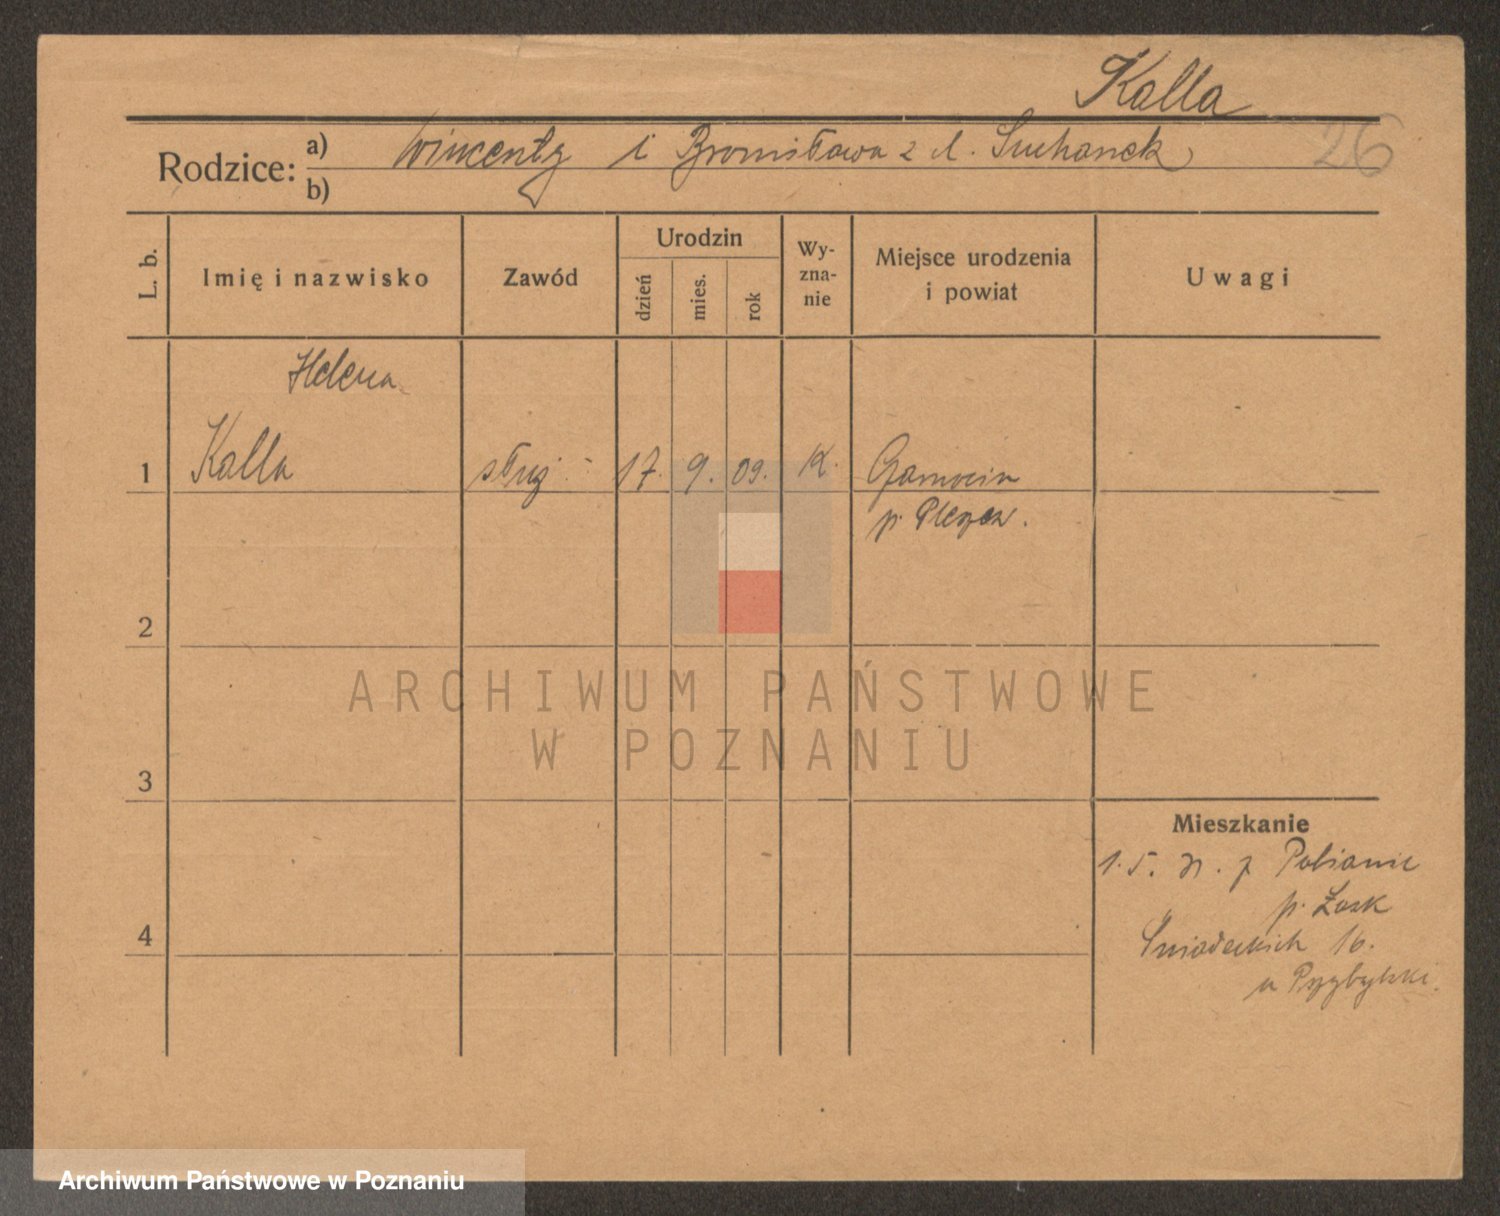 Kalla
26
Rodzice: a) Wincenty i Bronisława z d. Suchanek
b)
L. b.
Imię i nazwisko
Zawód
Urodzin
dzień
mies.
rok
Wy-
zna-
nie
Miejsce urodzenia
i powiat
Uwagi
Helena
1 Kalla służ. 17. 9. 09. K.
p.
2
3
4
Mieszkanie
1. 5.
Pabianic
p. Łask
Śniadeckich 16.
u Przybylski.
ARCHIWUM PAŃSTWOWE
W POZNANIU
Archiwum Państwowe w Poznaniu